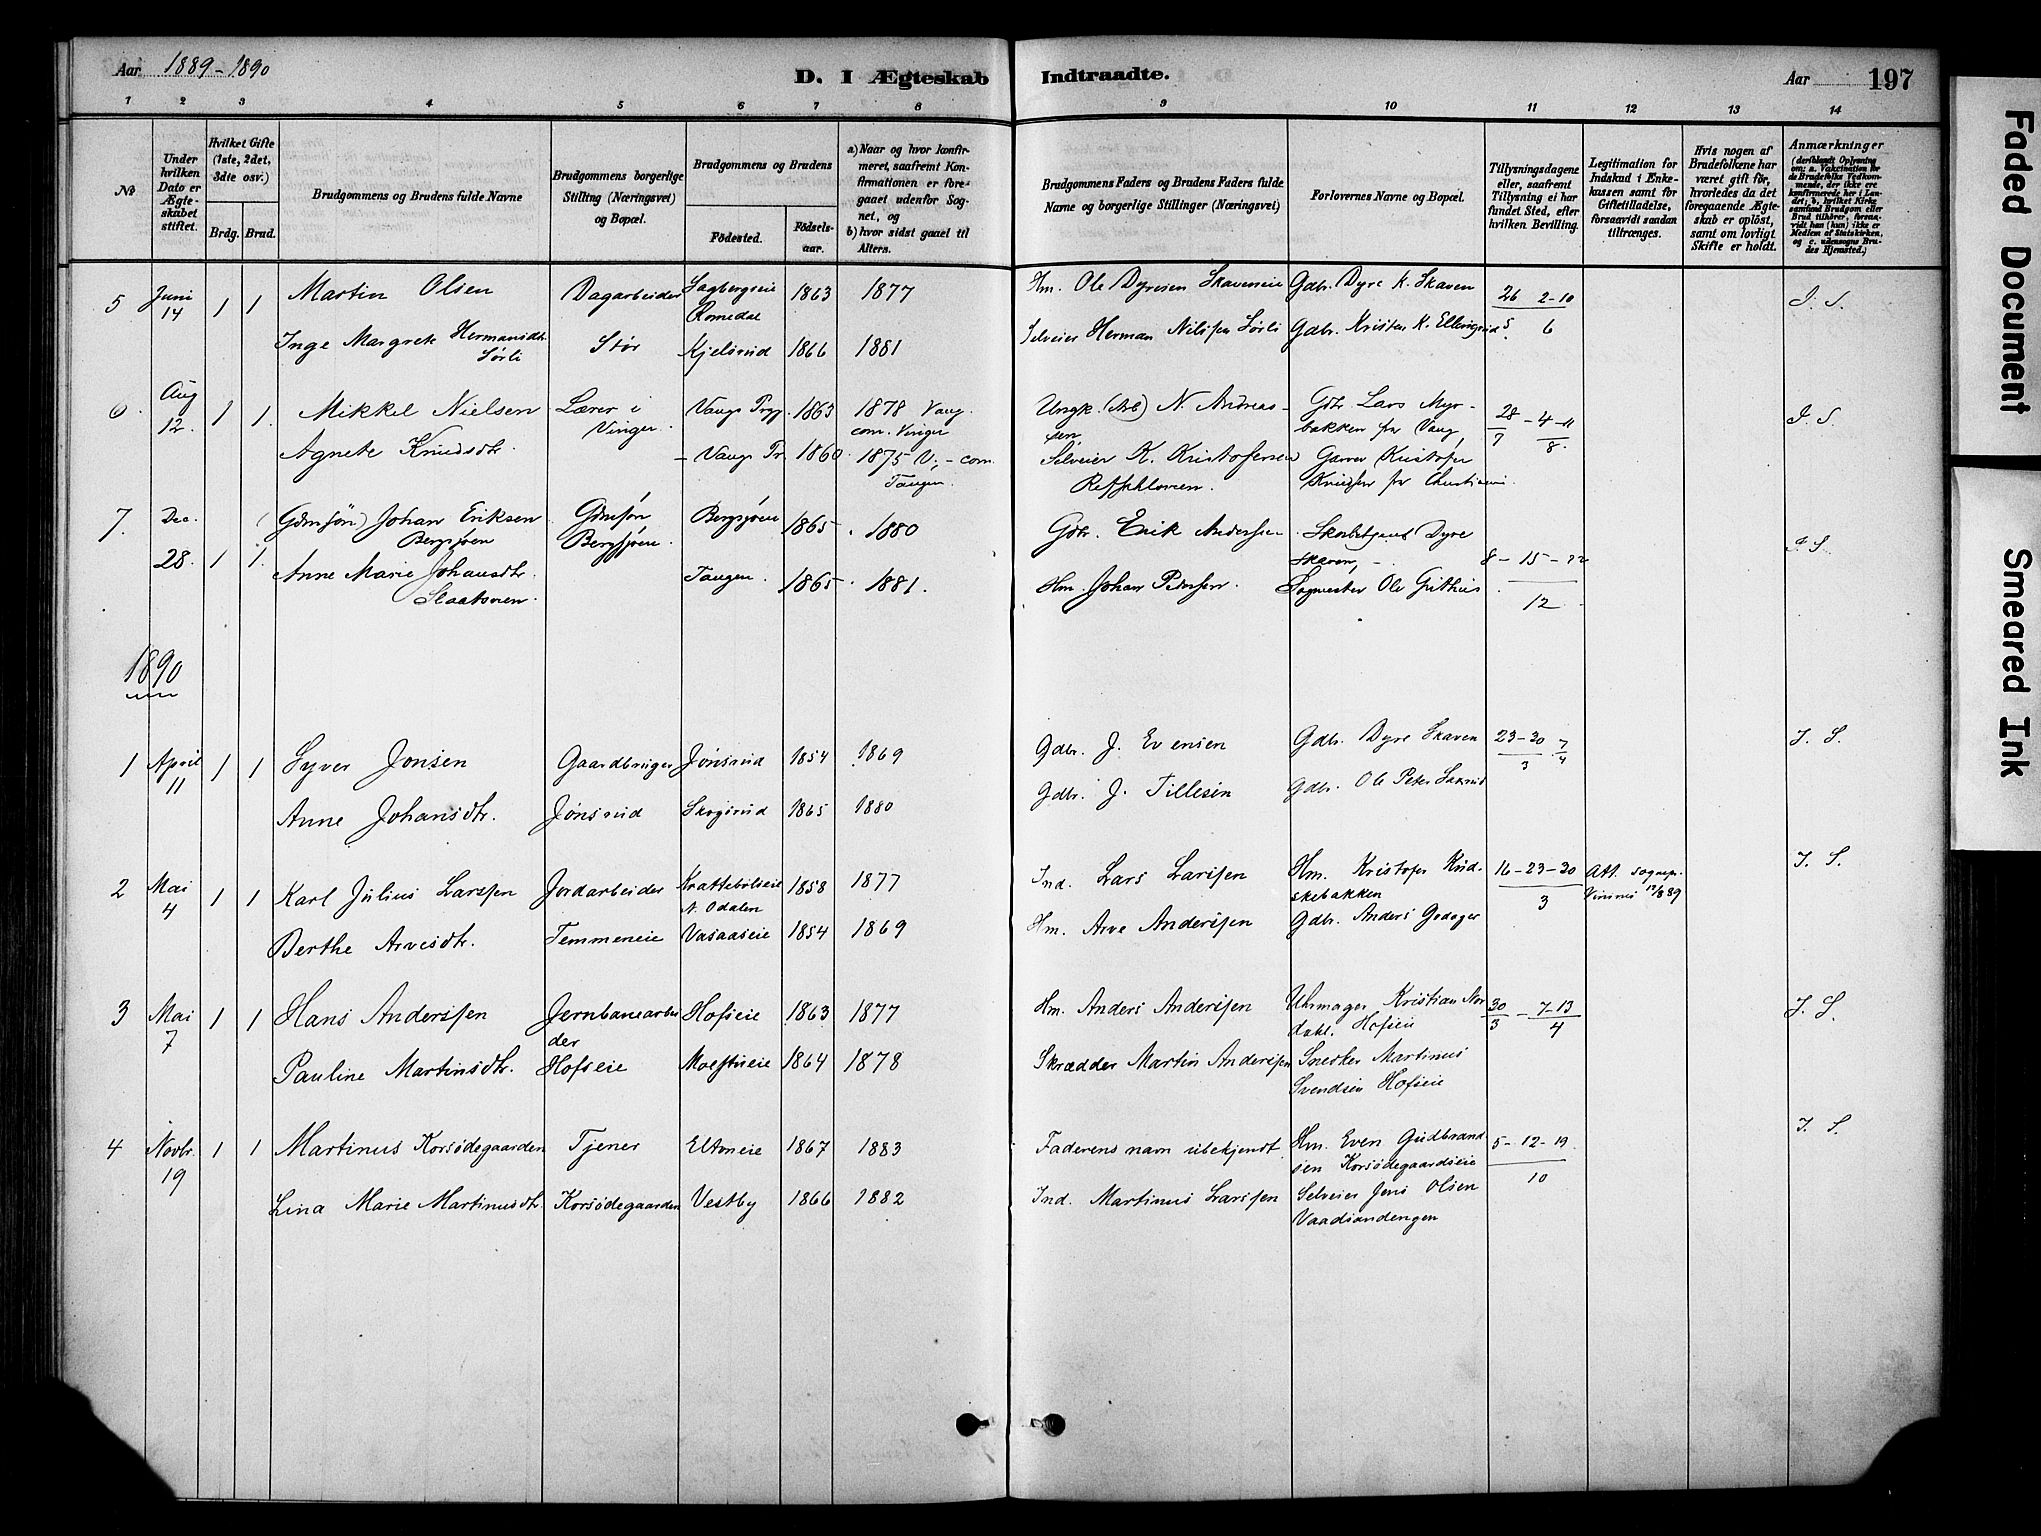 Aar 1889-1890
D. I Ægteskab Indtraadte.
Aar 197
1 2 3 4 5 6 7 8 9 10 11 12 13 14
No
Under hvilken Dato er Ægteskabet stiftet.
Hvilket Gifte (1ste, 2det, 3die osv.)
Brdg. Brud.
Brudgommens og Brudens fulde Navne
Brudgommens borgerlige Stilling (Næringsvei) og Bopæl.
Brudgommens og Brudens
Födested. Födselsaar.
a) Naar og hvor konfirmeret, saafremt Konfirmationen er foregaaet udenfor Sognet, og
b) hvor sidst gaaet til Alters.
Brudgommens Faders og Brudens Faders fulde Navne og borgerlige Stillinger (Næringsvei)
Forlovernes Navne og Bopæl.
Tillysningsdagene eller, saafremt Tillysning ei har fundet Sted, efter hvilken Bevilling.
Legitimation for Indskud i Enkekassen samt for Giftetilladelse, forsaavidt saadan tiltrænges.
Hvis nogen af Brudefolkene har været gift før, hvorledes da det foregaaende Ægteskab er oplöst, samt om lovligt Skifte er holdt.
Anmærkninger
(deriblandt Oplysning om: a. Vakcination for de Brudefolks Vedkommende, der ikke ere konfirmerede her i Landet; b. hvilket Kirkesamfund Brudgom eller Brud tilhörer, forsaavidt han (hun) ikke er Medlem af Statskirken, og c. udensogns Brudes Hjemsted.)
5 Juni 14 1 1 Martin Olsen Dagarbeider Sagbergseie Romedal 1863 1877 Hm. Ole Dyresen Skaveneie Gdbr. Dyre K. Skaven 26 2-10 I. S.
Inge Margrete Hermansdtr. Sørli Stør Kjelsrud 1866 1881 Selveier Herman Nilssen Sørli Gdbr. Kristen K. Ellingsrud 5 6
6. Aug 12. 1 1. Mikkel Nielsen Lærer i Vinger. Vangs Prgj. 1863 1878 Vang. com. Vinger Ungk. (Arb) N. Andreassen Gdbr Lars Myrbakken fra Vang 28/7 - 4-11/8. I. S.
Agnete Knudsdtr. - Vangs Pr. 1860. 1875 V; - com. Tangen. Selveier K. Kristofersen Garver Kristofer Knudsen
7. Dec. 28. 1 1. (Gdmsøn) Johan Eriksen Bergsjøen Gdmsøn Bergsjøen. Bergsjøen 1865 1880 Gdbr. Erik Anderssen Dyre Skaven, 8 - 15 - 22 I. S.
Anne Marie Johansdtr. Slaatmoen. Tangen. 1865 1881. Hm. Johan Pedersen. Ole 12
1890
1 April 11 1 1 Syver Jonsen Gaardbruger Jønsrud 1854 1869 Gdbr. J. Evensen Gdbr. Dyre Skaven 23-30/3 7/4 I. S.
Anne Johansdtr. Jønsrud Skogsrud 1865 1880 Gdbr. J. Tillesen Gdbr. Ole Peter
2 Mai 4 1 1 Karl Julius Larssen Jordarbeider Krattebølseie N. Odalen 1858 1877 Ind. Lars Larssen Hm. Kristofer Kuskebakken 16-23-30 Att. sognepr. Vinsnes 12/8 89 I. S.
Berthe Arvesdtr. Temmeneie Vasaaseie 1854 1869 Hm. Arve Anderssen Gdbr. Anders Godager 3
3 Mai 7 1 1 Hans Anderssen Jernbanearbeider Hofseie 1863 1877 Hm. Anders Anderssen Uhrmager Kristian Nordahl. Hofseie 30/3 - 7-13/4 I. S.
Pauline Martinsdtr. Hofseie Moestueie 1864 1878 Skrædder Martin Anderssen Snedker Martinus Svendsen Hofseie
4 Novbr. 19 1 1 Martinus Korsødegaarden Tjener Eltoneie 1867 1883 Faderens navn ubekjendt Hm. Even Gudbrandsen Korsødegaardseie 5-12-19. I. S.
Lina Marie Martinusdtr. Korsødegaarden Vestby 1866 1882 Ind. Martinus Larssen Selveier Jens Olsen Vaadsandengen 10
Faded Document
Smeared Ink